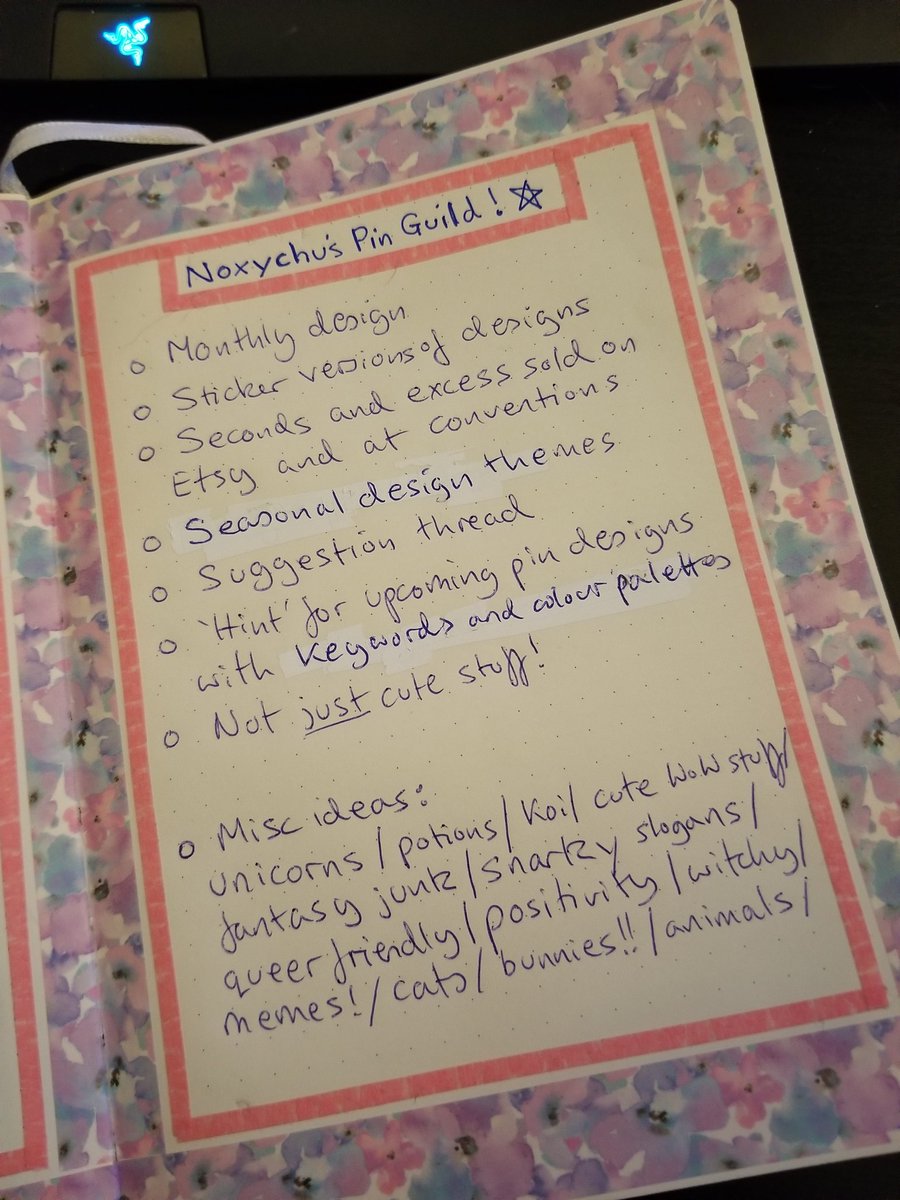 Noxychu's Pin Guild! ☆
o Monthly design
o Sticker versions of designs
o Seconds and excess sold on
Etsy and at conventions
o Seasonal design themes
o Suggestion thread
o 'Hint' for upcoming pin designs
with keywords and colour palettes
o Not just cute stuff!
o Misc ideas:
unicorns/potions/koi/cute WoW stuff/
fantasy junk/snarky slogans/
queer friendly/positivity/witchy/
memes!/cats/bunnies!!/animals/